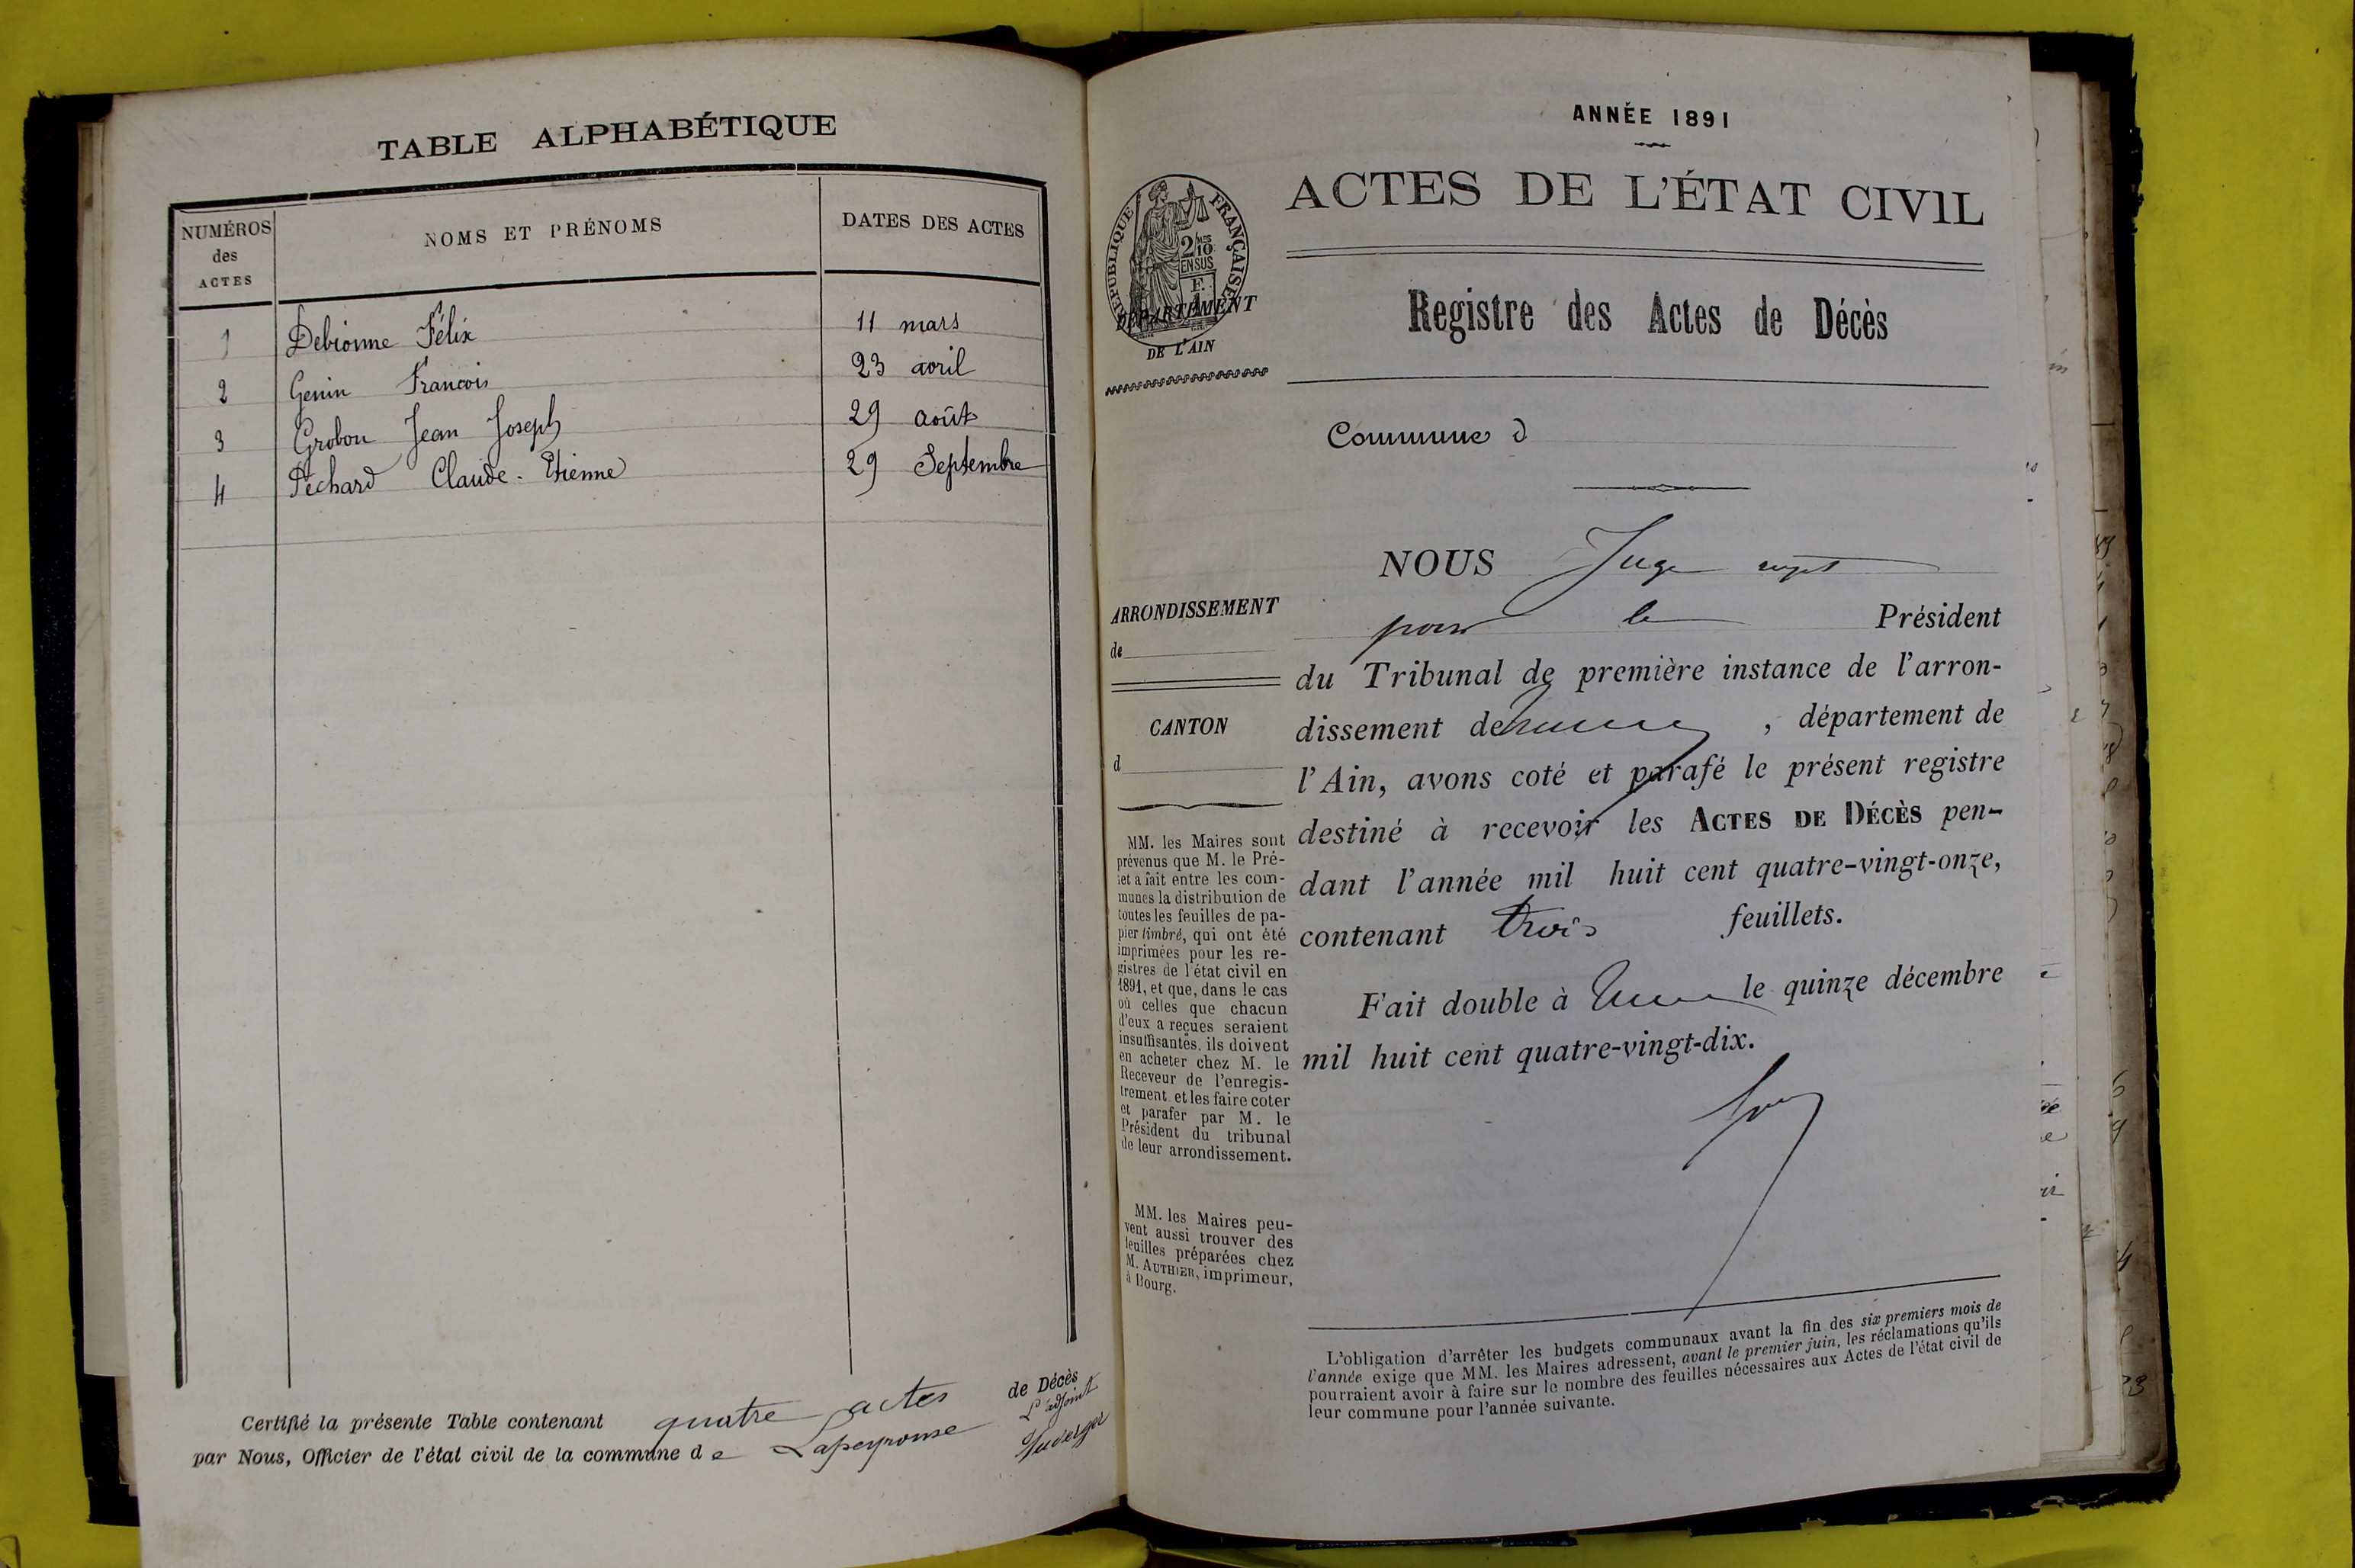 TABLE ALPHABÉTIQUE
NUMÉROS
des
ACTES
NOMS ET PRÉNOMS
DATES DES ACTES
1 Debionne Félix 11 mars
2 Genin Francois 23 avril
3 Grobon Jean Joseph 29 août
4 Péchard Claude-Etienne 29 Septembre
Certifié la présente Table contenant quatre actes de Décès
par Nous, Officier de l'état civil de la commune de Lapeyrouse
L'adjoint
ANNÉE 1891
RÉPUBLIQUE FRANÇAISE
2 10
EN SUS
DÉPARTEMENT
DE L'AIN
ACTES DE L'ÉTAT CIVIL
Registre des Actes de Décès
Commune d
ARRONDISSEMENT
de
CANTON
d
MM. les Maires sont
prévenus que M. le Pré-
fet a fait entre les com-
munes la distribution de
toutes les feuilles de pa-
pier timbré, qui ont été
imprimées pour les re-
gistres de l'état civil en
1891, et que, dans le cas
où celles que chacun
d'eux a reçues seraient
insuffisantes, ils doivent
en acheter chez M. le
Receveur de l'enregis-
trement et les faire coter
et parafer par M. le
Président du tribunal
de leur arrondissement.
MM. les Maires peu-
vent aussi trouver des
feuilles préparées chez
M. AUTHIER, imprimeur,
à Bourg.
NOUS Juge
pour le Président
du Tribunal de première instance de l'arron-
dissement de , département de
l'Ain, avons coté et parafé le présent registre
destiné à recevoir les ACTES DE DÉCÈS pen-
dant l'année mil huit cent quatre-vingt-onze,
contenant trois feuillets.
Fait double à le quinze décembre
mil huit cent quatre-vingt-dix.
L'obligation d'arrêter les budgets communaux avant la fin des six premiers mois de
l'année exige que MM. les Maires adressent, avant le premier juin, les réclamations qu'ils
pourraient avoir à faire sur le nombre des feuilles nécessaires aux Actes de l'état civil de
leur commune pour l'année suivante.